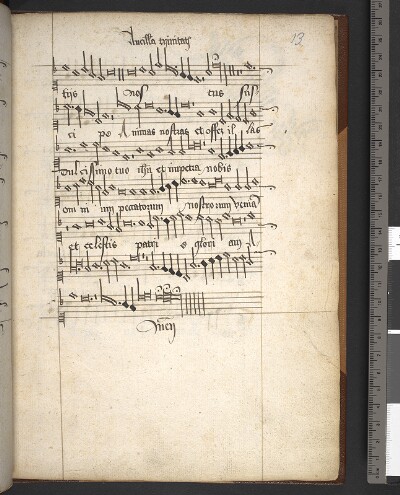 Ancilla trinitatis
13
tijs nos tus sus
ci po Animas nostras et offer il las
Dulcissimo tuo ihu et impetra nobis
om ni um peccatorum nostrorum veniā
et celestis patri e glori am A
Amen